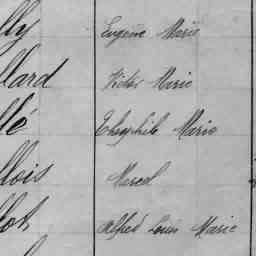 lly Eugène Marie
llard Victor Marie
llé Théophile Marie
llois Marcel
llot Alfred Louis Marie